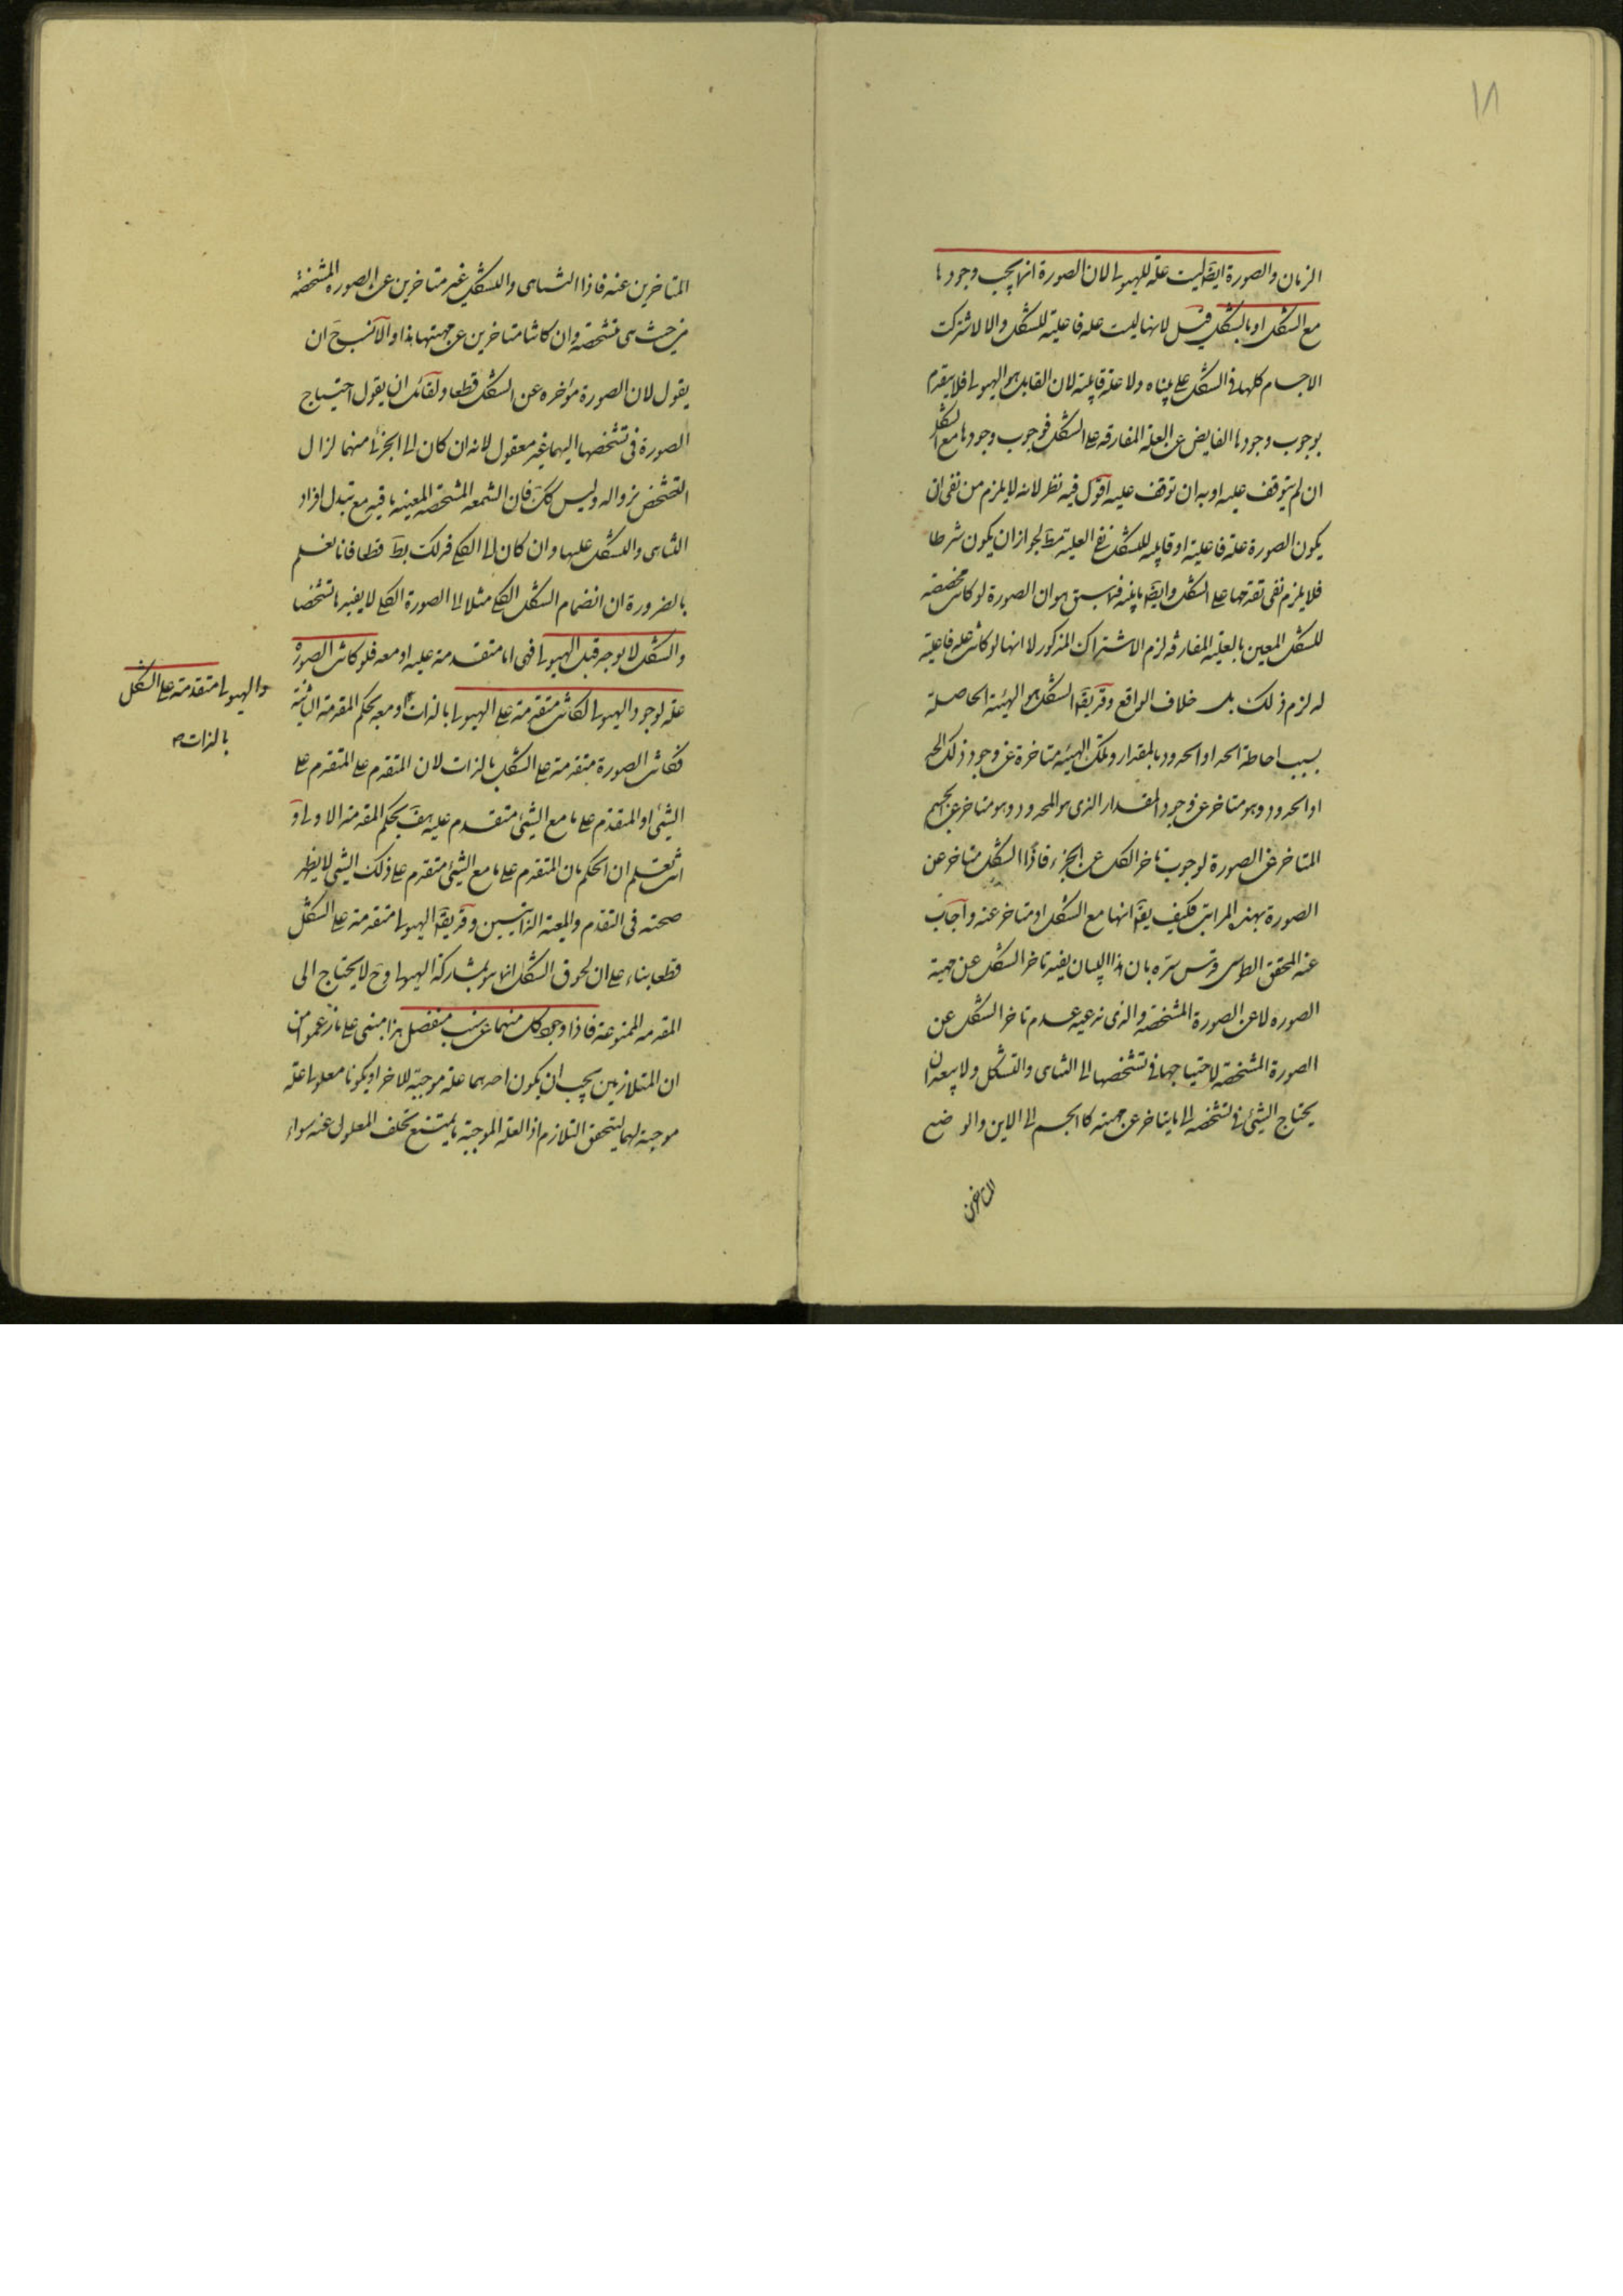 ١٨
الزمان والصورة ايضا ليست علة للهيولى لان الصورة انما يجب وجودها
مع الشكل او بالشكل قيل لانها ليست علة فاعلية للشكل والا لاشتركت
الاجسام كلها فى الشكل على ما بيناه ولا علة قابلية لان القابل هو الهيولى فلا يتقدم
بوجوب وجودها الفايض عن العلة المفارقة على الشكل فوجوب وجودها مع الشكل
ان لم يتوقف عليه او به ان توقف عليه اقول فيه نظر لانه لا يلزم من نفى ان
يكون الصورة علة فاعلية او قابلية للشكل نفى العلية مط لجواز ان يكون شرطا
فلا يلزم نفى تقدمها على الشكل وايضا ما بينه فيما سبق هو ان الصورة لو كانت مخصصة
للشكل المعين بالعلية المفارقة لزم الاشتراك المذكور لا انها لو كانت علة فاعلية
له لزم ذلك بل خلاف الواقع وقد يقال الشكل هو الهيئة الحاصلة
بسبب احاطة الحد او الحدود بالمقدار وتلك الهيئة متاخرة عن وجود ذلك الحد
او الحدود وهو متاخر عن وجود المقدار الذى هو المحدود وهو متاخر عن الجسم
المتاخر عن الصورة لوجوب تاخر الكل عن الجزء فاذا الشكل متاخر عن
الصورة بهذه المراتب فكيف يقال انها مع الشكل او متاخر عنه واجاب
عنه المحقق الطوسى قدس سره بان هذا البيان يفيد تاخر الشكل عن مهية
الصورة لا عن الصورة المشخصة والذى ندعيه عدم تاخر الشكل عن
الصورة المشخصة لاحتياجها فى تشخصها الى التناهى والتشكل ولا يبعد ان
يحتاج الشئ فى تشخصه الى ما يتاخر عن مهيته كالجسم الى الاين والوضع
المتاخرين
المتاخرين عنه فاذا التناهى والتشكل غير متاخرين عن الصورة المشخصة
من حيث هى متشخصة وان كانتا متاخرين عن مهيتها هذا والانسب ح ان
يقول لان الصورة موخرة عن الشكل قطعا ولقائل ان يقول احتياج
الصورة فى تشخصها اليهما غير معقول لانه ان كان الى الجزئى منهما لزال
التشخص بزواله وليس كك فان الشمعة المشخصة المعينة باقية مع تبدل افراد
التناهى والتشكل عليها وان كان الى الكلى فذلك بط قطعا فانا نعلم
بالضرورة ان انضمام الشكل الكلى مثلا الى الصورة الكلى لا يفيدها تشخصا
والشكل لا يوجد قبل الهيولى فهى اما متقدمة عليه او معه فلو كانت الصورة
علة لوجود الهيولى لكانت متقدمة على الهيولى بالذات او معه بحكم المقدمة الثانية
والهيولى متقدمة على الشكل
بالذات
فكانت الصورة متقدمة على الشكل بالذات لان المتقدم على المتقدم على
الشئ او المتقدم على ما مع الشئ متقدم عليه هف بحكم المقدمة الاولى و
انت تعلم ان الحكم بان المتقدم على ما مع الشئ متقدم على ذلك الشئ لا يظهر
صحته فى التقدم والمعية الذاتيين وقد يقال الهيولى متقدمة على الشكل
قطعا بناء على ان لحوق الشكل انما هو بمشاركة الهيولى وح لا يحتاج الى
المقدمة الممنوعة فاذا وجود كل منهما عن سبب منفصل هذا مبنى على ما زعموا من
ان المتلازمين يجب ان يكون احدهما علة موجبة للاخر او يكونا معلولى علة
موجبة لهما ليتحقق التلازم اذ العلة الموجبة ما يمتنع تخلف المعلول عنه سواء